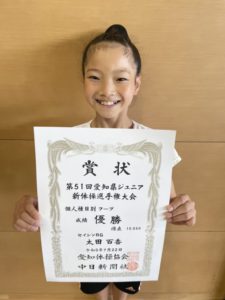 賞状
第51回愛知県ジュニア
新体操選手権大会
個人種目別 フープ
成績 優勝
得点
セイシンRG
太田 百香
令和5年7月22日
愛知体操協会
中日新聞社